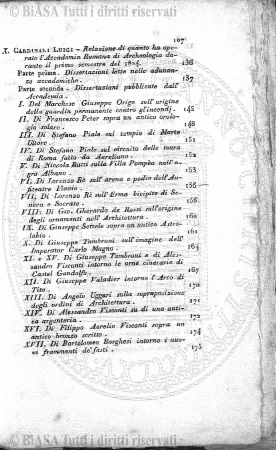 © BiASA Tutti i diritti riservati
107
X. CARDINALI LUIGI - Relazione di quanto ha ope-
rato l'Accademia Romana di Archeologia du-
rante il primo semestre del 1824. 136
Parte prima. Dissertazioni lette nelle adunan-
ze accademiche.
Parte seconda. Dissertazioni pubblicate dall'
Accademia.
I. Del Marchese Giuseppe Origo sull'origine
della guardia permanente contro gl'incendj. 145
II. Di Francesco Peter sopra un antico orolo-
gio solare 148
III. Di Stefano Piale sul tempio di Marte
Ultore. 151
IV. Di Stefano Piale sul circuito delle mura
di Roma fatto da Aureliano. 152
V. Di Niccola Ratti sulla Villa Pompea nell'a-
gro Albano.
VI. Di Lorenzo Re sull'arena e podio dell'An-
fiteatro Flavio.
VII. Di Lorenzo Re sull'Erma bicipite di Sene-
ca e Socrate. 158
VIII. Di Gio. Gherardo de Rossi sull'origine
degli ornamenti nell'Architettura. 160
IX. Di Giuseppe Settele sopra un antico Astro-
labio 161
X. Di Giuseppe Tambroni sull'imagine dell'
Imperator Carlo Magno
XI. e XV. Di Giuseppe Tambroni e di Ales-
sandro Visconti intorno le urne cinerarie di
Castel Gandolfo. 167
XII. Di Giuseppe Valadier intorno l'Arco di
Tito. 170
XIII. Di Angelo Uggeri sulla soprapposizione
degli ordini di Architettura. 171
XIV. Di Alessandro Visconti su di una anti-
ca argenteria. 172
XVI. Di Filippo Aurelio Visconti sopra un
antico bronzo scritto 174
XVII. Di Bartolomeo Borghesi intorno i nuo-
vi frammenti de' fasti. 175
© BiASA Tutti i diritti riservati